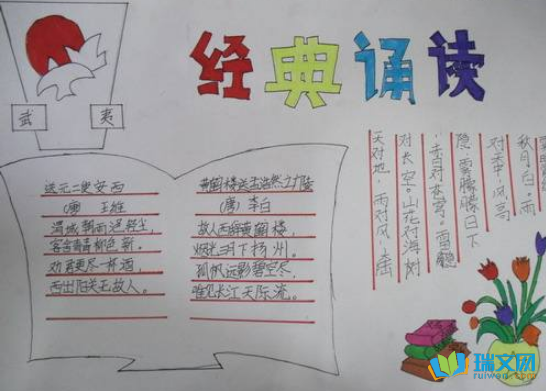 经典诵读
武 夷
送元二使安西
（唐） 王维
渭城朝雨浥轻尘，
客舍青青柳色新。
劝君更尽一杯酒，
西出阳关无故人。
黄鹤楼送孟浩然之广陵
（唐）李白
故人西辞黄鹤楼，
烟花三月下扬州。
孤帆远影碧空尽，
唯见长江天际流。
天对地，雨对风，大陆
对长空。山花对海树
，赤日对苍穹。雷隐
隐，雾朦朦。日下
对天中，风高
秋月白，雨
瑞文网